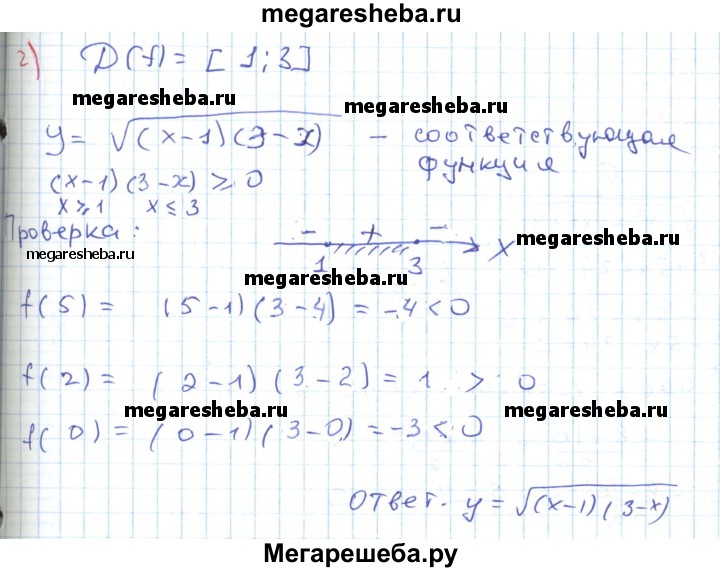 megaresheba.ru
2) D(f) = [1; 3]
megaresheba.ru megaresheba.ru
y = √(x-1)(3-x) – соответствующая
функция
(x-1)(3-x) ≥ 0
x ≥ 1 x ≤ 3
Проверка:
- + -
1 3 x
megaresheba.ru
megaresheba.ru
megaresheba.ru
f(5) = (5-1)(3-4) = -4 < 0
f(2) = (2-1)(3-2) = 1 > 0
megaresheba.ru megaresheba.ru
f(0) = (0-1)(3-0) = -3 < 0
Ответ. y = √(x-1)(3-x)
Мегарешеба.ру